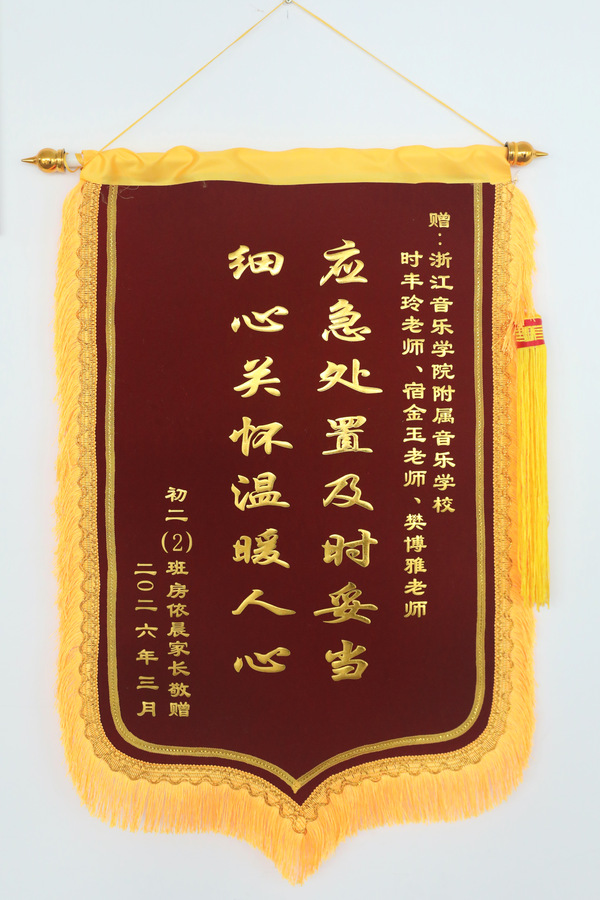 赠：浙江音乐学院附属音乐学校
时丰玲老师、宿金玉老师、樊博雅老师
应急处置及时妥当
细心关怀温暖人心
初二(2)班房依晨家长敬赠
二〇二六年三月